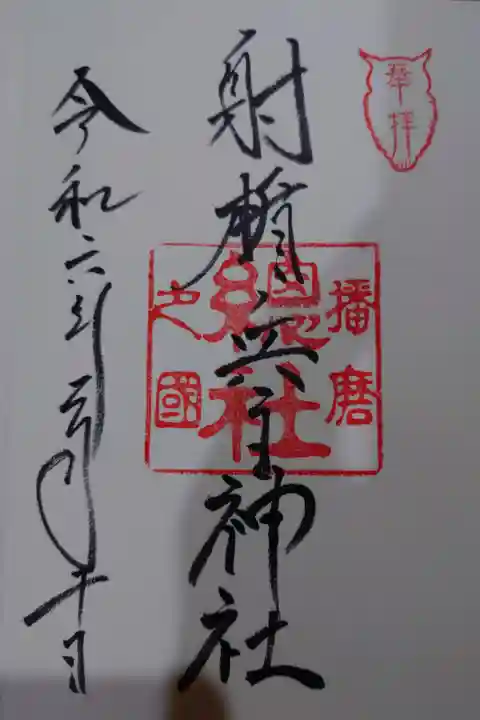 奉拝
射楯兵主神社
播磨
總社
之國
令和六年月十日